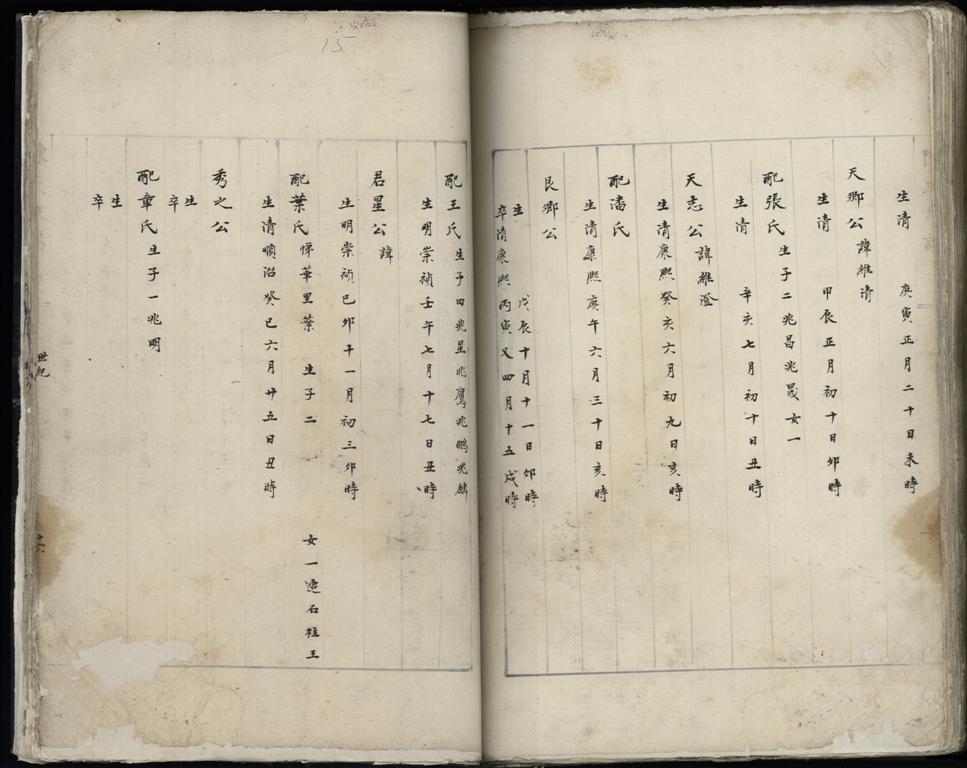 生清 庚寅正月二十日未時
天卿公 諱維清
生清 甲辰正月初十日卯時
配張氏 生子二兆昌兆晟女一
生清 辛亥七月初十日丑時
天志公 諱維蓥
生清康熙癸亥六月初九日亥時
配潘氏
生清康熙庚午六月三十日亥時
艮鄉公
生 戊辰十月十一日卯時
卒清康熙丙寅又四月十五戌時
配王氏 生子四兆星兆鷹兆鵬兆麟
生明崇禎壬午七月十七日丑時
君星公 諱
生明崇禎己卯十一月初三卯時
配葉氏 悌華里葉 生子二 女一適石柱王
生清順治癸巳六月廿五日丑時
秀之公
生
卒
配章氏 生子一兆明
生
卒
世紀
十六
15